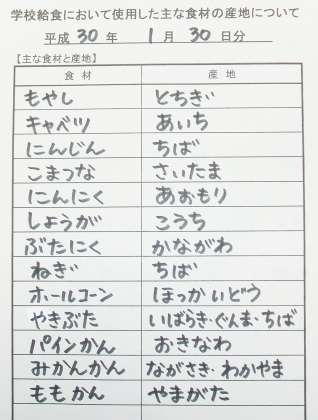 学校給食において使用した主な食材の産地について
平成 30 年 1 月 30 日分
【主な食材と産地】
食 材 産 地
もやし とちぎ
キャベツ あいち
にんじん ちば
こまつな さいたま
にんにく あおもり
しょうが こうち
ぶたにく かながわ
ねぎ ちば
ホールコーン ほっかいどう
やきぶた いばらき・ぐんま・ちば
パインかん おきなわ
みかんかん ながさき・わかやま
ももかん やまがた